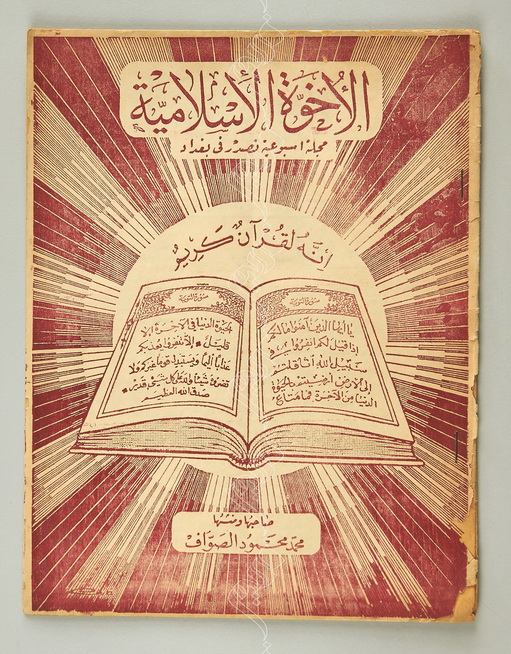 الأُخوّة الأسلاميّة
مجلة اسبوعية تصدر في بغداد
إنّهُ لقُرآنٌ كَرِيمٌ
سورة التوبة
يا أيها الذين آمنوا مالكم
إذا قيل لكم انفروا في
سبيل الله اثاقلتم
إلى الأرض أرضيتم بالحيوة
الدنيا من الآخرة فما متاع
سورة التوبة
الحيوة الدنيا في الآخرة إلا
قليل إلا تنفروا يعذبكم
عذابا أليما ويستبدل قوما غيركم ولا
تضروه شيئا والله على كل شيء قدير
صدق الله العظيم
صاحبها ومنشئها
محمد محمود الصواف